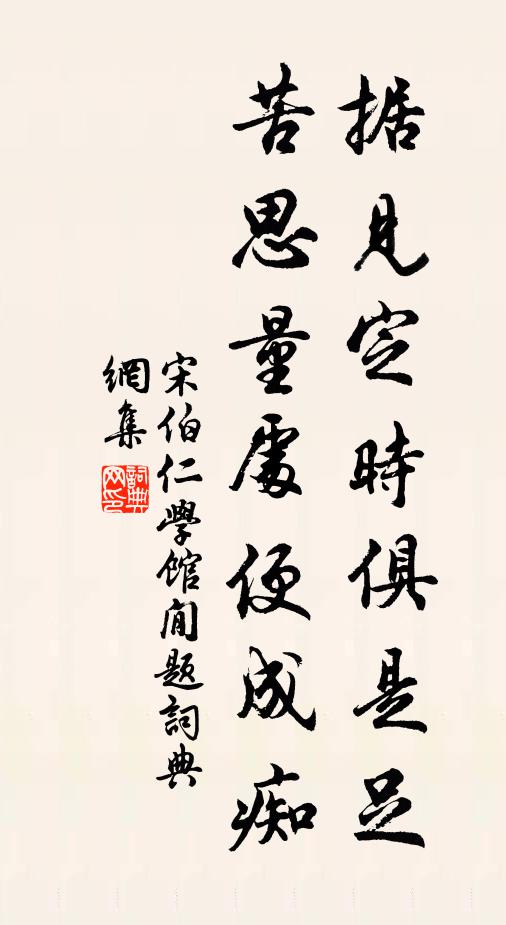 据見定時俱是足
苦思量處便成痴
宋伯仁學館閒題詞典
網集
詞典網印